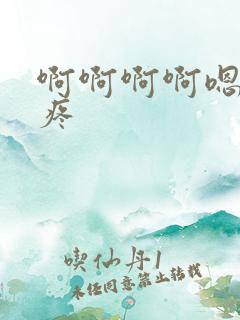 啊啊啊啊嗯
疼
喫仙丹1
未经同意禁止转载